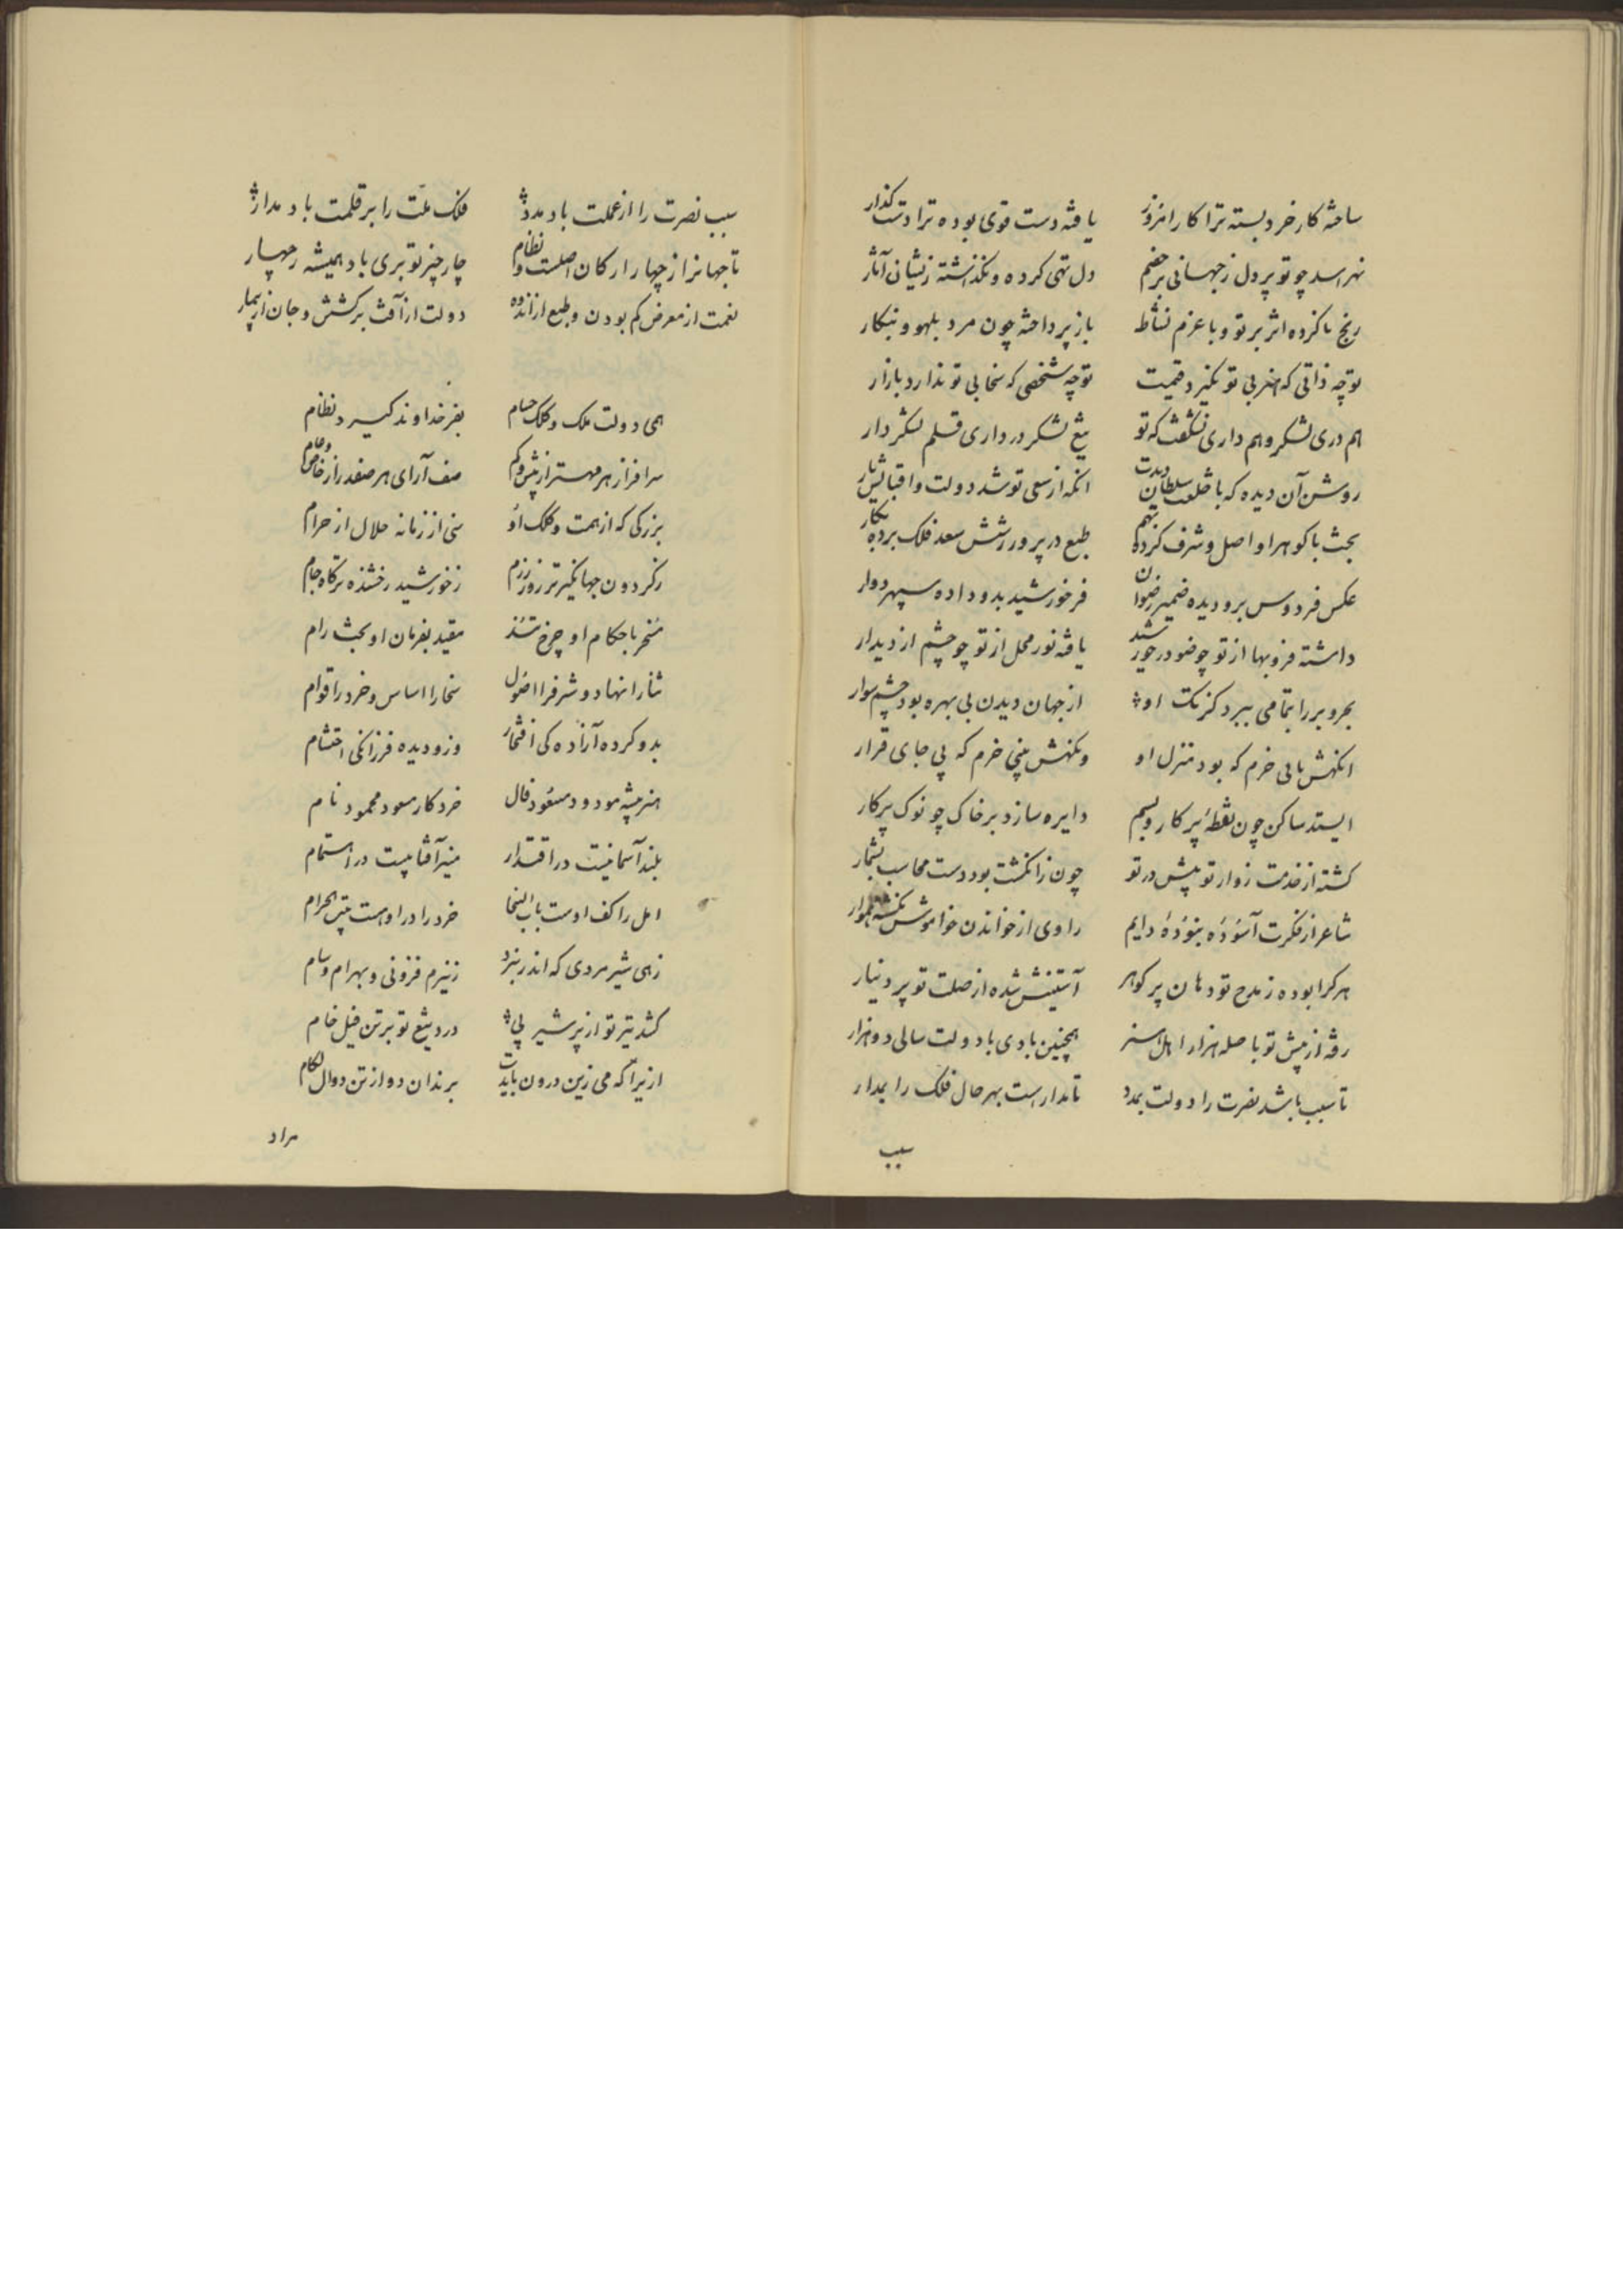 ساخته کار خرد بسته ترا کار امروز یافته دست قوی بوده ترا دست گذار
نهراسد چو تو پر دل ز جهانی پر خصم دل تهی کرده و نگذاشته زیشان آثار
رنج ناکرده اثر بر تو و با عزم نشاط باز پرداخته چون مرد بلهو و بنکار
تو چه ذاتی که هنر بی تو نگیرد قیمت تو چه شخصی که سخا بی تو ندارد بازار
هم دری لشکر و هم داری نشگفت که تو تیغ لشکر در داری قلم لشکر دار
روشن آن دیده که با خلعت سلطان دیدت انکه از سعی تو شد دولت و اقبالش یار
بحث با گوهر او اصل و شرف کرده بهم طبع در پرورشش سعد فلک برده بکار
عکس فردوس برو دیده ضمیر رضوان فر خورشید بدو داده سپهر دوار
داشته فر و بها از تو چو ضو در خورشید یافته نور محل از تو چو چشم از دیدار
بحر و بر را بتمامی ببرد کز تک او از جهان دیدن بی بهره بود چشم سوار
ایستد ساکن چون نقطه پرکار و بسم دایره سازد بر خاک چو نوک پرکار
گشته از خدمت زوار تو پیش در تو چون ز انگشت بود دست محاسب بشمار
شاعر از فکرت آسوده بنوده دایم راوی از خواندن خواموش نگشته هموار
هر کرا بوده ز مدح تو دهان پر گوهر آستینش شده از صلت تو پر دینار
رفته از پیش تو با صله هزار اهل هنر همچنین بادی با دولت سالی دو هزار
تا سبب باشد نصرت را دولت بمدد تا مدارست بهر حال فلک را بمدار
سبب
سبب نصرت را از عملت باد مدد فلک ملت را بر قلمت باد مدار
تا جهانرا ز چهار ارکان اصلست و نظام چار چیز تو بری باد همیشه ز چهار
نعمت از معرض کم بودن و طبع از انده دولت از آفت برگشتن و جان از تیمار
همی دولت و ملک و کلک حسام بفر خداوند گیرد نظام
سرافراز هر مهتر از بیش و کم صف آرای هر صفدر از خاص و عام
بزرگی که از همت و کلک او سنی از زمانه حلال از حرام
ز گردون جهانگیرتر روز رزم ز خورشید رخشنده تر گاه جام
مسخر باحکام او چرخ تند مقید بفرمان او بخت رام
ثنا را نهاد و شرف را اصول سخا را اساس و خرد را قوام
بدو کرده آزادگی افتخار وزو دیده فرزانگی احتشام
هنر پیشه مودود مسعود فال خرد کار مسعود محمود نام
بلند آسمانیست در اقتدار منیر آفتابیست در اهتمام
امل را کف اوست باب السخا خرد را در اوست بیت الحرام
زهی شیر مردی که اندر نبرد ز نیرم فزونی و بهرام و سام
کشد تیر تو از بر شیر پی درد تیغ تو بر تن فیل خام
ازیرا که می زین درون بایدت برند آن دو از تن دوال لگام
مراد